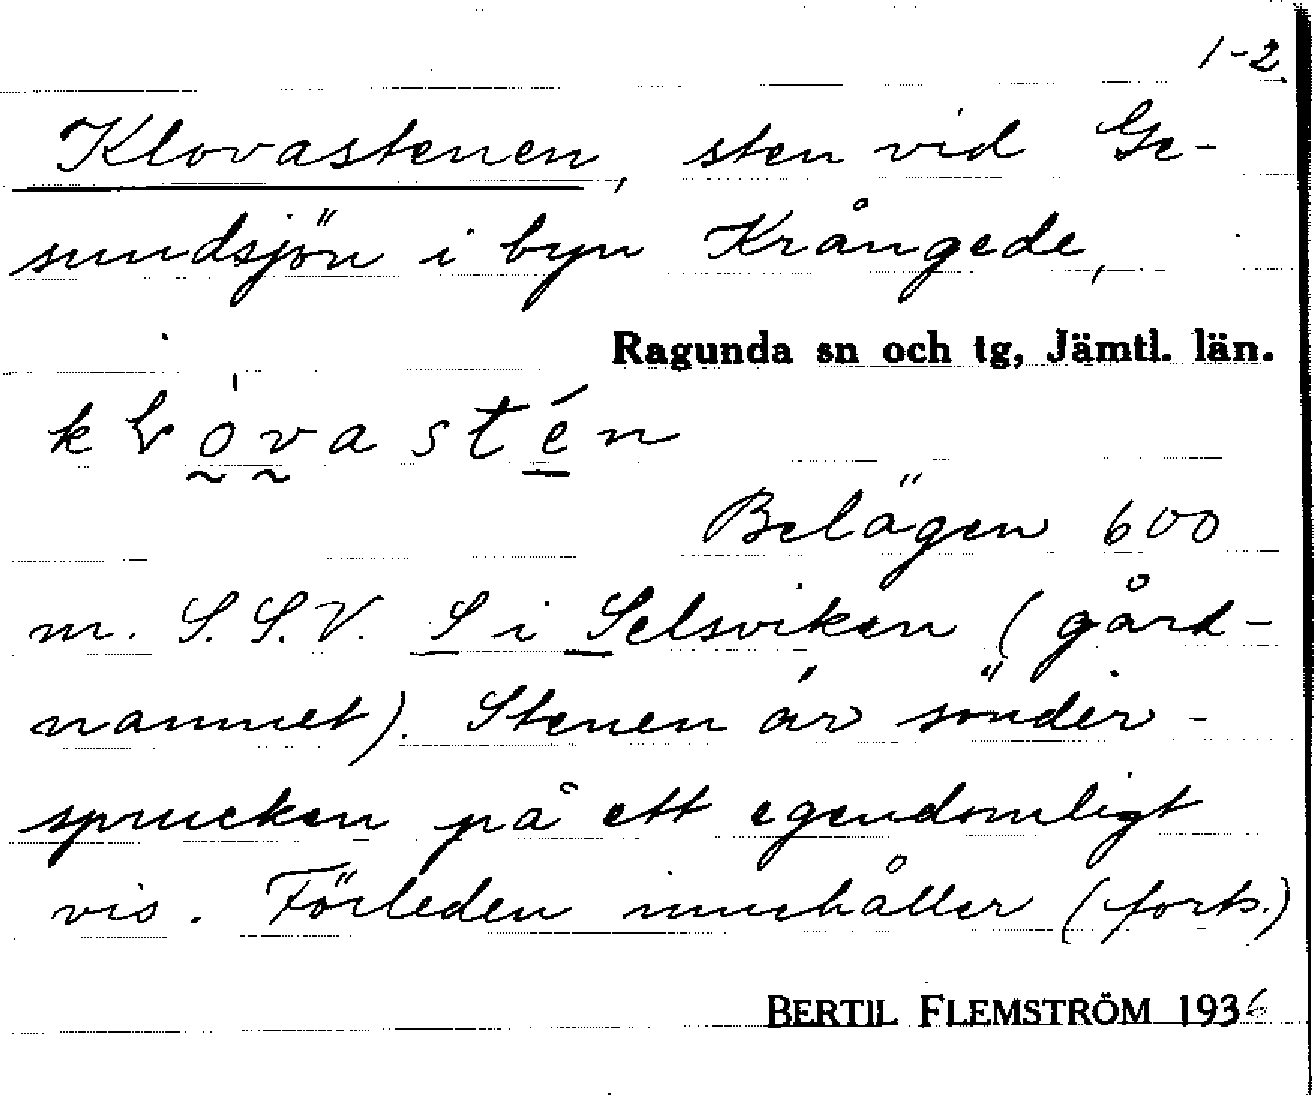 1-2.
Klovastenen, sten vid Ge-
sundsjön i byn Krångede,
Ragunda sn och tg, Jämtl. län.
Belägen 600
m. S.S.V. S i Selsviken (gård-
namnet). Stenen är sönder-
sprucken på ett egendomligt
vis. Förleden innehåller (forts.)
BERTIL FLEMSTRÖM 1936